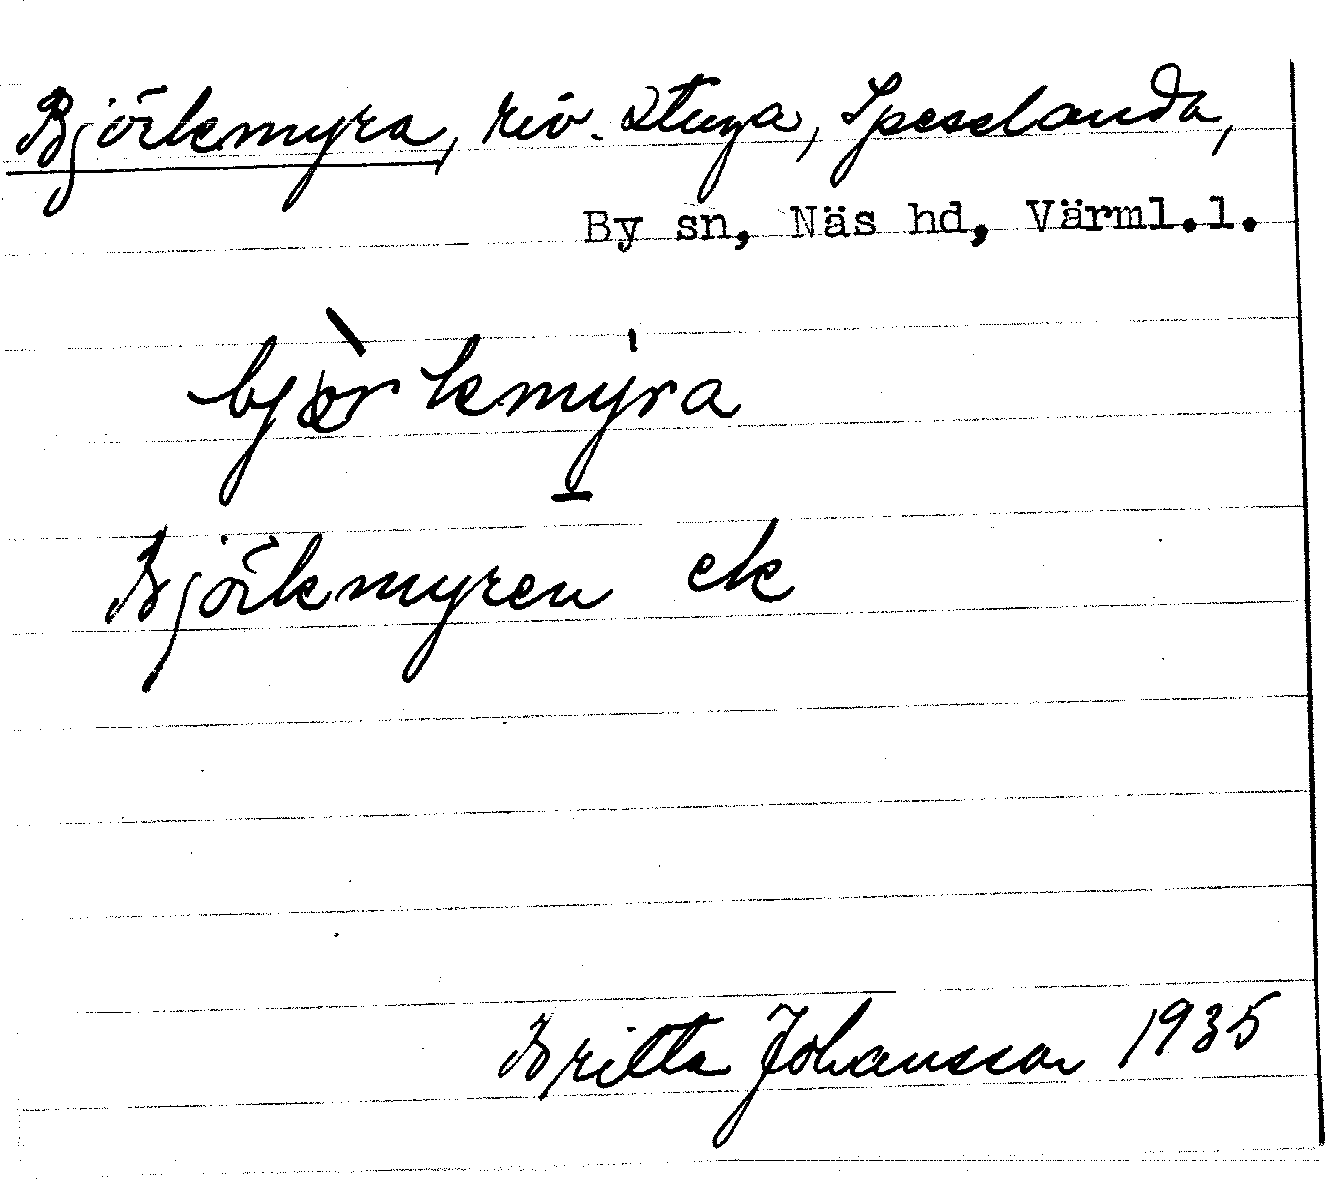 Björkmyra, riv. stuga, Speselanda,
By sn, Näs hd, Värml.l.
bjò̈rkmy̱ra
Björkmyren ek
Britta Johansson 1935